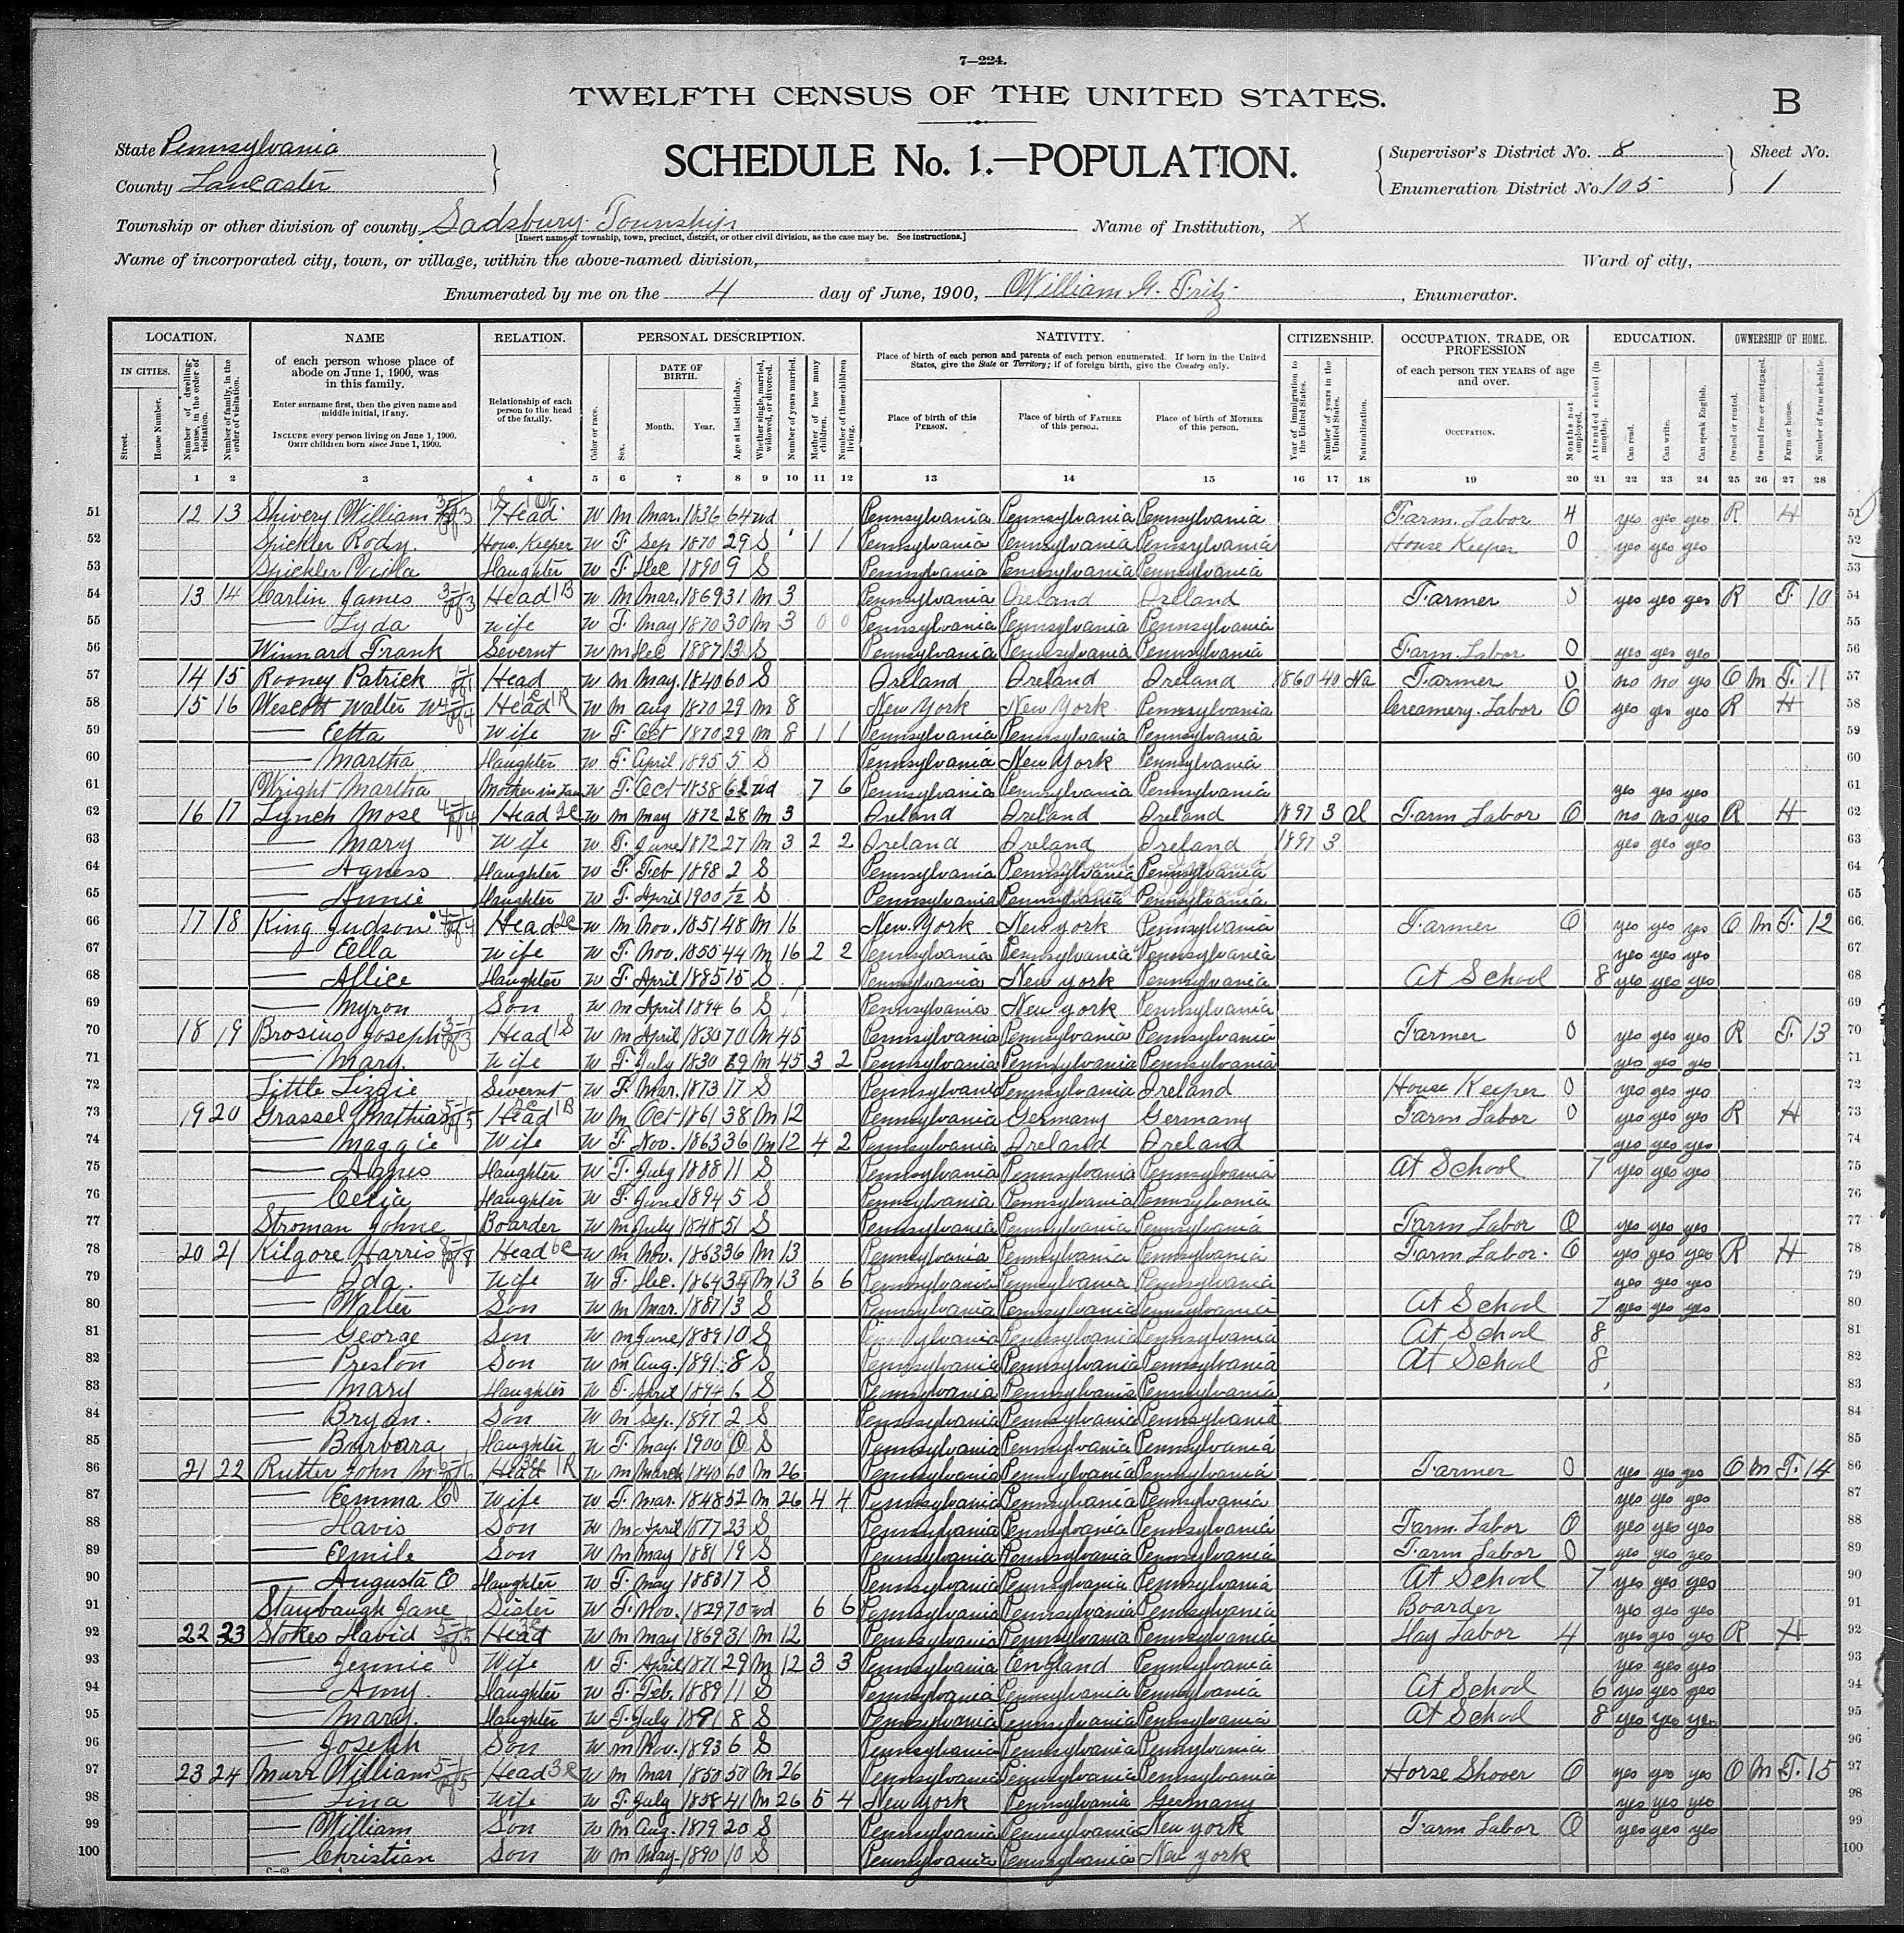 7—224.
TWELFTH CENSUS OF THE UNITED STATES.
B
State Pennsylvania
County Lancaster
SCHEDULE No. 1.—POPULATION.
Supervisor's District No. 8
Enumeration District No. 105
Sheet No.
1
Township or other division of county, Sadsbury Township
[Insert name of township, town, precinct, district, or other civil division, as the case may be. See instructions.]
Name of Institution, X
Name of incorporated city, town, or village, within the above-named division,
Ward of city,
Enumerated by me on the 4 day of June, 1900, William G. Fritz, Enumerator.
LOCATION. NAME RELATION. PERSONAL DESCRIPTION. NATIVITY. CITIZENSHIP. OCCUPATION, TRADE, OR PROFESSION EDUCATION. OWNERSHIP OF HOME.
IN CITIES.
Street.
House Number.
Number of dwelling-house, in the order of visitation.
Number of family, in the order of visitation.
of each person whose place of abode on June 1, 1900, was in this family.
Enter surname first, then the given name and middle initial, if any.
INCLUDE every person living on June 1, 1900.
OMIT children born since June 1, 1900.
Relationship of each person to the head of the family.
Color or race.
Sex.
DATE OF BIRTH.
Month. Year.
Age at last birthday.
Whether single, married, widowed, or divorced.
Number of years married.
Mother of how many children.
Number of these children living.
Place of birth of each person and parents of each person enumerated. If born in the United States, give the State or Territory; if of foreign birth, give the Country only.
Place of birth of this PERSON.
Place of birth of FATHER of this person.
Place of birth of MOTHER of this person.
Year of immigration to the United States.
Number of years in the United States.
Naturalization.
of each person TEN YEARS of age and over.
OCCUPATION.
Months not employed.
Attended school (in months).
Can read.
Can write.
Can speak English.
Owned or rented.
Owned free or mortgaged.
Farm or house.
Number of farm schedule.
1 2 3 4 5 6 7 8 9 10 11 12 13 14 15 16 17 18 19 20 21 22 23 24 25 26 27 28
51 12 13 Shivery William Head W M Mar. 1836 64 wd Pennsylvania Pennsylvania Pennsylvania Farm. Labor 4 yes yes yes R H 51
52 Spickler Rody. Hous. Keeper W F Sep 1870 29 S 1 1 Pennsylvania Pennsylvania Pennsylvania House Keeper 0 yes yes yes 52
53 Spickler Daughter W F Dec 1890 9 S Pennsylvania Pennsylvania Pennsylvania 53
54 13 14 Carlin James Head W M Mar. 1869 31 M 3 Pennsylvania Ireland Ireland Farmer yes yes yes R F. 10 54
55 — Lyda wife W F. May 1870 30 M 3 0 0 Pennsylvania Pennsylvania Pennsylvania 55
56 Winnard Frank Severnt W M Dec 1887 S Pennsylvania Pennsylvania Pennsylvania Farm. Labor 0 yes yes yes 56
57 14 15 Rooney Patrick Head W M May. 1840 60 S Ireland Ireland Ireland 1860 40 Na Farmer 0 no no yes O M F. 11 57
58 15 16 Wescott Walter W Head W M aug 1870 29 M 8 New York New York Pennsylvania Creamery. Labor 0 yes yes yes R H 58
59 — Eetta Wife W F. Oct 1870 29 M 8 1 1 Pennsylvania Pennsylvania Pennsylvania 59
60 — Martha Daughter W F. April 1895 5 S Pennsylvania New York Pennsylvania 60
61 Wright Martha Mother in Law W F. Oct 1838 wd 7 6 Pennsylvania Pennsylvania Pennsylvania yes yes yes 61
62 16 17 Lynch Mose Head W M May 1872 28 M 3 Ireland Ireland Ireland 1897 3 al Farm Labor 0 no no yes R H 62
63 — Mary Wife W F. June 1872 27 M 3 2 2 Ireland Ireland Ireland 1897 3 yes yes yes 63
64 — Agness Daughter W F. Feb 1898 2 S Pennsylvania Pennsylvania Ireland Pennsylvania Ireland 64
65 — Annie Daughter W F. April 1900 1/12 S Pennsylvania Pennsylvania Ireland Pennsylvania Ireland 65
66 17 18 King Judson Head W M Nov. 1851 48 M 16 New York New York Pennsylvania Farmer 0 yes yes yes O M F. 12 66
67 — Eella Wife W F. Nov. 1855 44 M 16 2 2 Pennsylvania Pennsylvania Pennsylvania yes yes yes 67
68 — Allice Daughter W F. April 1885 15 S Pennsylvania New York Pennsylvania At School 8 yes yes yes 68
69 — Myron Son W M April 1894 6 S Pennsylvania New York Pennsylvania 69
70 18 19 Brosius Joseph Head W M April 1830 70 M 45 Pennsylvania Pennsylvania Pennsylvania Farmer 0 yes yes yes R F. 13 70
71 — Mary. Wife W F. July 1830 69 M 45 3 2 Pennsylvania Pennsylvania Pennsylvania yes yes yes 71
72 Little Lizzie Severnt W F. Mar. 1873 17 S Pennsylvania Pennsylvania Ireland House Keeper 0 yes yes yes 72
73 19 20 Grassel Mathias Head W M Oct 1861 38 M 12 Pennsylvania Germany Germany Farm Labor 0 yes yes yes R H 73
74 — Maggie Wife W F. Nov. 1863 36 M 12 4 2 Pennsylvania Ireland Ireland yes yes yes 74
75 — Agnes Daughter W F. July 1888 11 S Pennsylvania Pennsylvania Pennsylvania At School 7 yes yes yes 75
76 — Celia Daughter W F. June 1894 5 S Pennsylvania Pennsylvania Pennsylvania 76
77 Stroman Johne Boarder W M July 1848 51 S Pennsylvania Pennsylvania Pennsylvania Farm Labor 0 yes yes yes 77
78 20 21 Kilgore Harris Head W M Nov. 1863 36 M 13 Pennsylvania Pennsylvania Pennsylvania Farm Labor. 0 yes yes yes R H 78
79 — Ida. Wife W F. Dec. 1864 34 M 13 6 6 Pennsylvania Pennsylvania Pennsylvania yes yes yes 79
80 — Walter Son W M Mar. 1887 13 S Pennsylvania Pennsylvania Pennsylvania At School 7 yes yes yes 80
81 — George Son W M June 1889 10 S Pennsylvania Pennsylvania Pennsylvania At School 8 81
82 — Preston Son W M Aug. 1891 8 S Pennsylvania Pennsylvania Pennsylvania At School 8 82
83 — Mary Daughter W F. April 1894 6 S Pennsylvania Pennsylvania Pennsylvania 83
84 — Bryan. Son W M Sep. 1897 2 S Pennsylvania Pennsylvania Pennsylvania 84
85 — Barbara Daughter W F. May. 1900 0 S Pennsylvania Pennsylvania Pennsylvania 85
86 21 22 Rutter John M. Head W M March 1840 60 M 26 Pennsylvania Pennsylvania Pennsylvania Farmer 0 yes yes yes O M F. 14 86
87 — Eemma C Wife W F. Mar. 1848 52 M 26 4 4 Pennsylvania Pennsylvania Pennsylvania yes yes yes 87
88 — Havis Son W M April 1877 23 S Pennsylvania Pennsylvania Pennsylvania Farm. Labor 0 yes yes yes 88
89 — Eemile Son W M May 1881 19 S Pennsylvania Pennsylvania Pennsylvania Farm Labor 0 yes yes yes 89
90 — Augusta Daughter W F. May 1883 17 S Pennsylvania Pennsylvania Pennsylvania At School 7 yes yes yes 90
91 Staubaugh Jane Sister W F. Nov. 1829 70 wd 6 6 Pennsylvania Pennsylvania Pennsylvania Boarder yes yes yes 91
92 22 23 Stokes David Head W M May 1869 31 M 12 Pennsylvania Pennsylvania Pennsylvania Day Labor 4 yes yes yes R H 92
93 — Jennie Wife W F. April 1871 29 M 12 3 3 Pennsylvania England Pennsylvania yes yes yes 93
94 — Amy. Daughter W F. Feb. 1889 11 S Pennsylvania Pennsylvania Pennsylvania At School 6 yes yes yes 94
95 — Mary. Daughter W F. July 1891 8 S Pennsylvania Pennsylvania Pennsylvania At School 8 yes yes yes 95
96 — Joseph Son W M Nov. 1893 6 S Pennsylvania Pennsylvania Pennsylvania 96
97 23 24 Marr William Head W M Mar 1850 50 M 26 Pennsylvania Pennsylvania Pennsylvania Horse Shover 0 yes yes yes O M F. 15 97
98 — Lina Wife W F. July 1858 41 M 26 5 4 New York Pennsylvania Germany yes yes yes 98
99 — William Son W M Aug. 1879 20 S Pennsylvania Pennsylvania New York Farm Labor 0 yes yes yes 99
100 — Christian Son W M May 1890 10 S Pennsylvania Pennsylvania New York 100